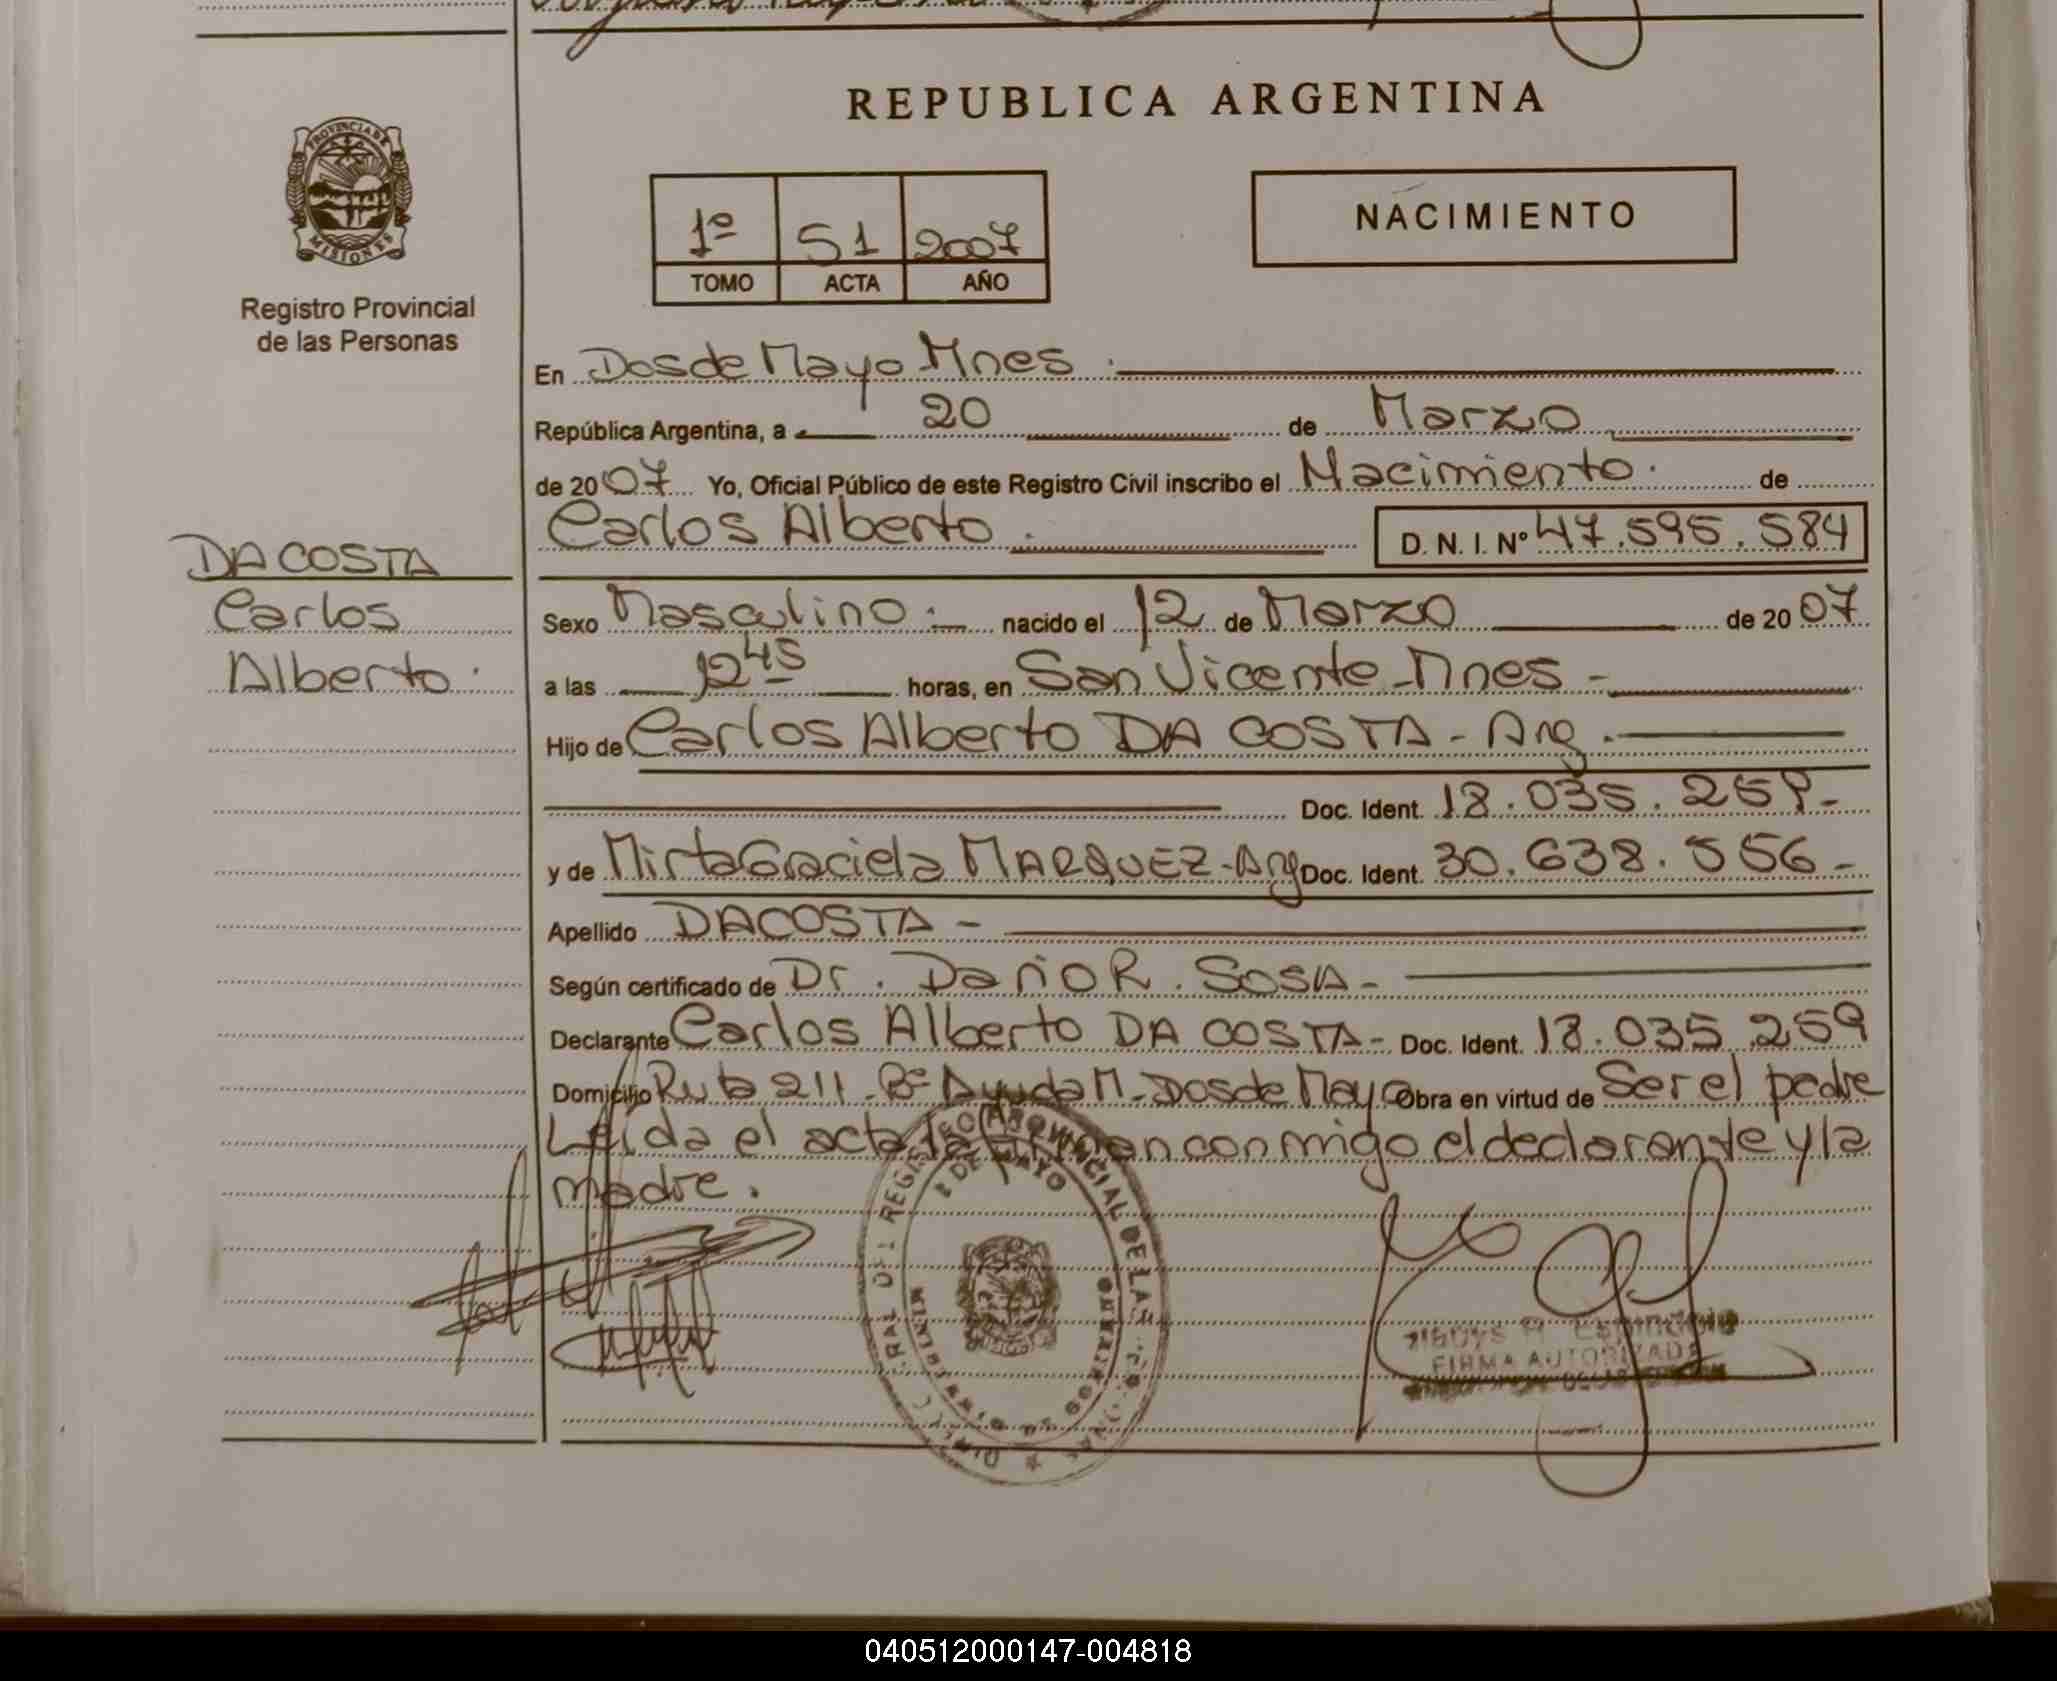 REPUBLICA ARGENTINA
PROVINCIA DE
MISIONES
Registro Provincial
de las Personas
1º 51 2007
TOMO ACTA AÑO
NACIMIENTO
En Dos de Mayo Mnes.
República Argentina, a 20 de Marzo
de 2007 Yo, Oficial Público de este Registro Civil inscribo el Nacimiento. de
Carlos Alberto. D. N. I. Nº 47.595.584
DA COSTA
Carlos
Alberto.
Sexo Masculino nacido el 12 de Marzo de 2007
a las 12 45 horas, en San Vicente - Mnes -
Hijo de Carlos Alberto DA COSTA - Arg.
Doc. Ident. 18.035.259-
y de Mirta Graciela MARQUEZ - Arg Doc. Ident. 30.638.556-
Apellido DA COSTA -
Según certificado de Dr. Dario R. SOSA -
Declarante Carlos Alberto DA COSTA - Doc. Ident. 18.035.259
Domicilio Ruta 211 - Bº Ayuda M - Dos de Mayo Obra en virtud de Ser el padre
Leída el acta la firman conmigo el declarante y la
madre.
2 DE MAYO
FIRMA AUTORIZADA
040512000147-004818